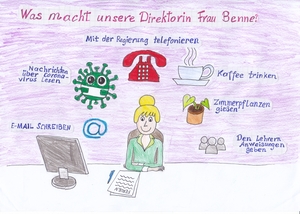 Was macht unsere Direktorin Frau Benne!
Mit der Regierung telefonieren
Nachrichten
über Corona-
virus lesen
Kaffee trinken
Zimmerpflanzen
gießen
E-MAIL SCHREIBEN
@
Den Lehrern
Anweisungen
geben